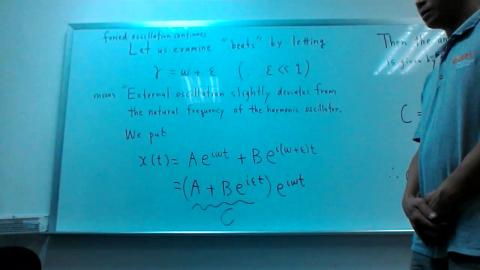 forced oscillation continues
Let us examine "beats" by letting
γ = w + ε ( ε << 1 )
means "External oscillation slightly deviates from
the natural frequency of the harmonic oscillator.
We put
x(t) = A e^{iwt} + B e^{i(w+ε)t}
= (A + B e^{iεt}) e^{iwt}
C
Then the
is given by
C =
∴